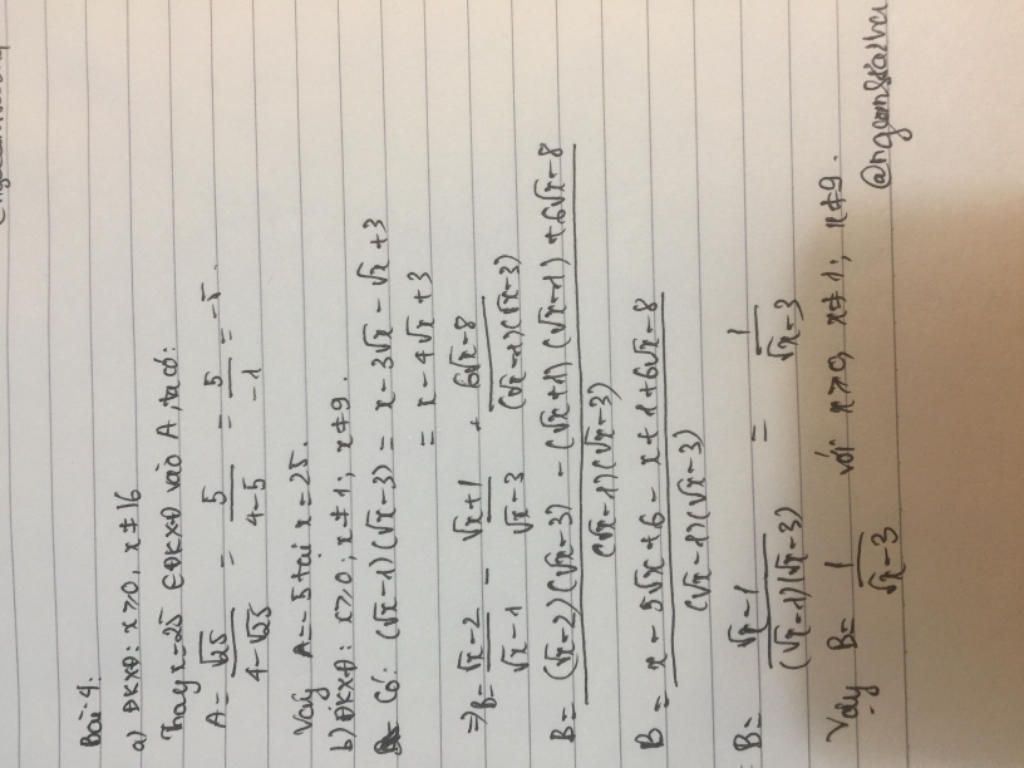 Bài 4.
a) ĐKXĐ: x ⩾ 0, x ≠ 16
Thay x = 25 ∈ ĐKXĐ vào A, ta có:
A = √25 / (4 - √25) = 5 / (4 - 5) = 5 / -1 = -5.
Vậy A = -5 tại x = 25.
b) ĐKXĐ: x ⩾ 0; x ≠ 1; x ≠ 9.
Có: (√x - 1)(√x - 3) = x - 3√x - √x + 3
= x - 4√x + 3
⇒ B = (√x - 2) / (√x - 1) - (√x + 1) / (√x - 3) + (6√x - 8) / ((√x - 1)(√x - 3))
B = ((√x - 2)(√x - 3) - (√x + 1)(√x - 1) + 6√x - 8) / ((√x - 1)(√x - 3))
B = (x - 5√x + 6 - x + 1 + 6√x - 8) / ((√x - 1)(√x - 3))
B = (√x - 1) / ((√x - 1)(√x - 3)) = 1 / (√x - 3)
Vậy B = 1 / (√x - 3) với x ⩾ 0, x ≠ 1; x ≠ 9.